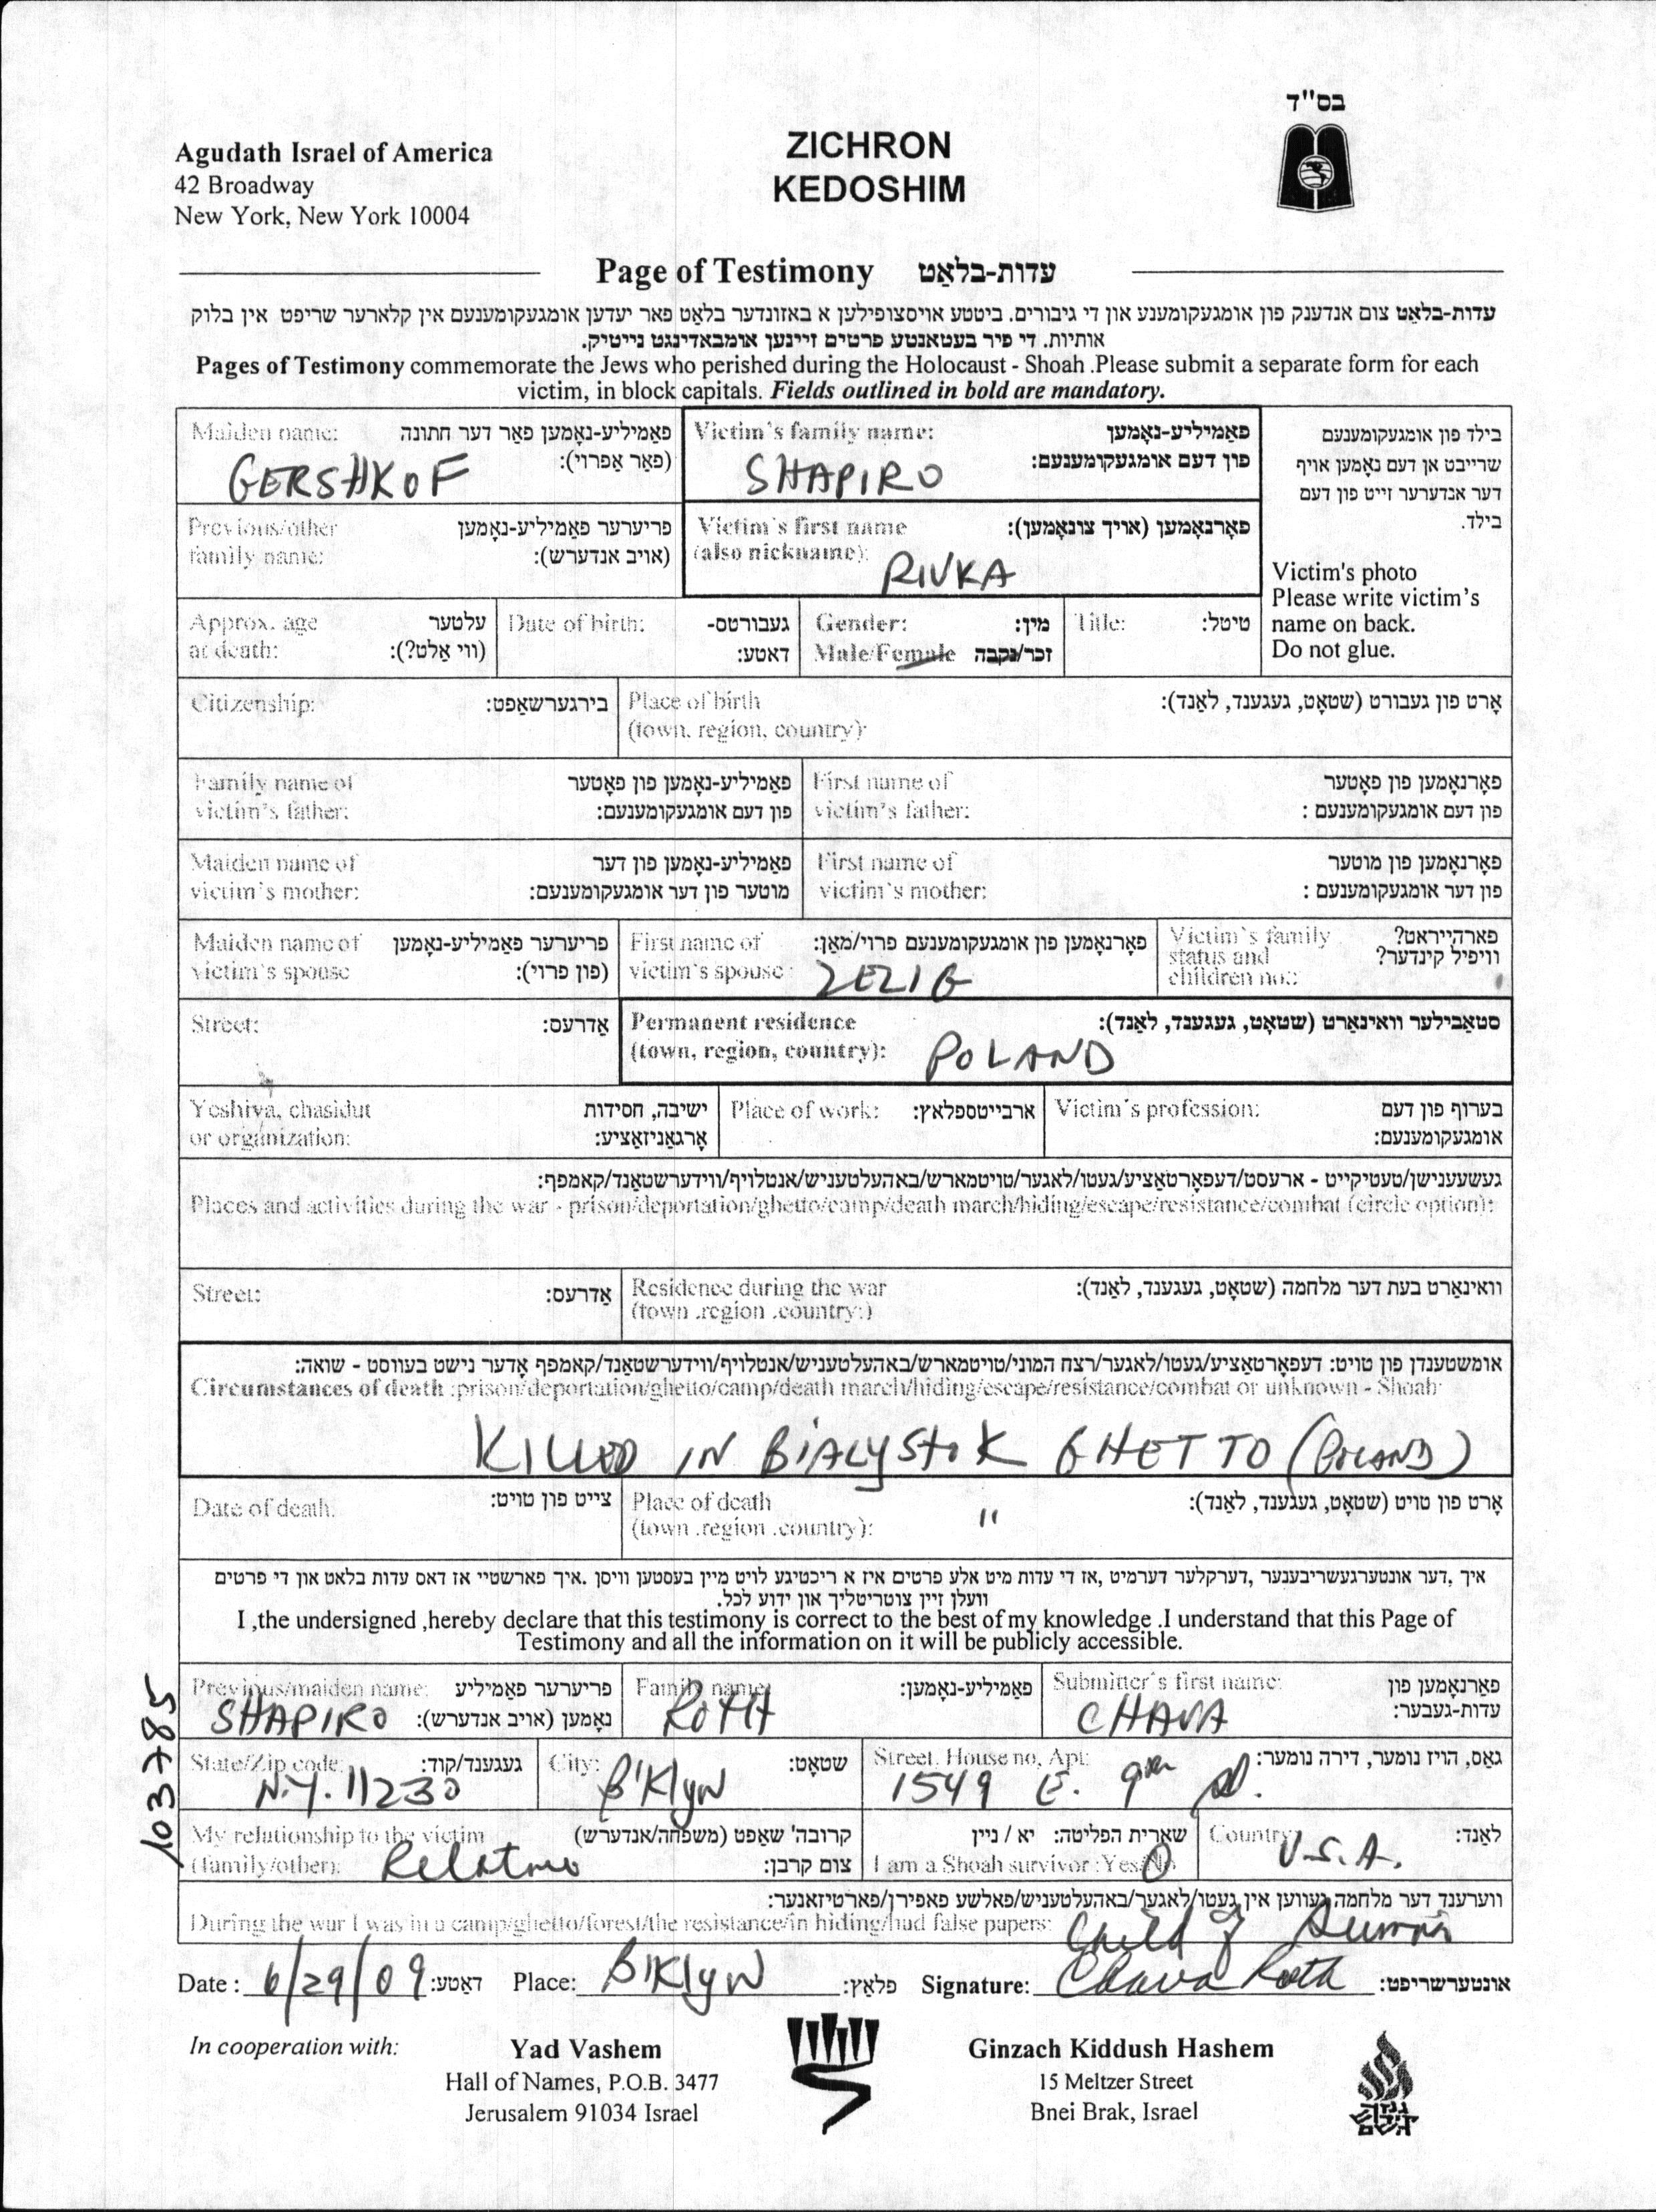 בס"ד
Agudath Israel of America
42 Broadway
New York, New York 10004
ZICHRON
KEDOSHIM
Page of Testimony עדות-בלאַט
עדות-בלאַט צום אנדענק פון אומגעקומענע און די גיבורים. ביטטע אויסצופילען א באזונדער בלאַט פאר יעדען אומגעקומענעם אין קלארער שריפט אין בלוק
אותיות. די פיר בעטאנטע פרטים זיינען אומבאדינגט נייטיק.
Pages of Testimony commemorate the Jews who perished during the Holocaust - Shoah .Please submit a separate form for each
victim, in block capitals. Fields outlined in bold are mandatory.
Maiden name: פאַמיליע-נאָמען פאַר דער חתונה
(פאַר אַפרוי):
GERSHKOF
Victim's family name: פאַמיליע-נאָמען
פון דעם אומגעקומענעם:
SHAPIRO
בילד פון אומגעקומענעם
שרייבט אן דעם נאָמען אויף
דער אנדערער זייט פון דעם
בילד.
Victim's photo
Please write victim's
name on back.
Do not glue.
Previous/other פריערער פאַמיליע-נאָמען
family name: (אויב אנדערש):
Victim's first name פאָרנאָמען (אויך צונאָמען):
(also nickname):
RIVKA
Approx. age עלטער
at death: (ווי אַלט?):
Date of birth: געבורטס-
דאטע:
Gender: מין:
Male/Female זכר/נקבה
Title: טיטל:
Citizenship: בירגערשאַפט:
Place of birth אָרט פון געבורט (שטאָט, געגענד, לאַנד):
(town, region, country):
Family name of פאַמיליע-נאָמען פון פאָטער
victim's father: פון דעם אומגעקומענעם:
First name of פאָרנאָמען פון פאָטער
victim's father: פון דעם אומגעקומענעם :
Maiden name of פאַמיליע-נאָמען פון דער
victim's mother: מוטער פון דער אומגעקומענעם:
First name of פאָרנאָמען פון מוטער
victim's mother: פון דער אומגעקומענעם :
Maiden name of פריערער פאַמיליע-נאָמען
victim's spouse (פון פרוי):
First name of פאָרנאָמען פון אומגעקומענעם פרוי/מאַן:
victim's spouse :
ZEZIG
Victim's family פארהייראט?
status and וויפיל קינדער?
children no.:
Street: אַדרעס:
Permanent residence סטאַבילער וואינאָרט (שטאָט, געגענד, לאַנד):
(town, region, country): POLAND
Yeshiva, chasidut ישיבה, חסידות
or organization: אָרגאַניזאַציע:
Place of work: ארבייטספלאץ:
Victim's profession: בערוף פון דעם
אומגעקומענעם:
געשעענישן/טעטיקייט - ארעסט/דעפאָרטאַציע/געטו/לאגער/טויטמארש/באהעלטעניש/אנטלויף/ווידערשטאַנד/קאמפף:
Places and activities during the war - prison/deportation/ghetto/camp/death march/hiding/escape/resistance/combat (circle option):
Street: אַדרעס:
Residence during the war וואינאָרט בעת דער מלחמה (שטאָט, געגענד, לאַנד):
(town .region .country:)
אומשטענדן פון טויט: דעפאָרטאַציע/געטו/לאגער/רצח המוני/טויטמארש/באהעלטעניש/אנטלויף/ווידערשטאַנד/קאמפף אָדער נישט בעוווסט - שואה:
Circumstances of death :prison/deportation/ghetto/camp/death march/hiding/escape/resistance/combat or unknown - Shoah:
KILLED IN BIALYSTOK GHETTO (POLAND)
Date of death: צייט פון טויט:
Place of death אָרט פון טויט (שטאָט, געגענד, לאַנד):
(town .region .country): "
איך ,דער אונטערגעשריבענער ,דערקלער דערמיט ,אז די עדות מיט אלע פרטים איז א ריכטיגע לויט מיין בעסטען וויסן .איך פארשטיי אז דאס עדות בלאט און די פרטים
וועלן זיין צוטריטליך און ידוע לכל.
I ,the undersigned ,hereby declare that this testimony is correct to the best of my knowledge .I understand that this Page of
Testimony and all the information on it will be publicly accessible.
Previous/maiden name: פריערער פאַמיליע
נאָמען (אויב אנדערש):
SHAPIRO
Family name: פאַמיליע-נאָמען:
ROTH
Submitter's first name: פאָרנאָמען פון
עדות-געבער:
CHAVA
State/Zip code: געגענד/קוד:
N.Y. 11230
City: שטאָט:
B'Klyn
Street, House no, Apt: גאַס, הויז נומער, דירה נומער:
1549 E. 9th
My relationship to the victim קרובה' שאַפט (משפחה/אנדערש)
(family/other): צום קרבן:
Relative
שארית הפליטה: יא / ניין
I am a Shoah survivor :Yes/No
Country: לאַנד:
U.S.A.
ווערענד דער מלחמה געווען אין געטו/לאגער/באהעלטעניש/פאלשע פאפירן/פארטיזאנער:
During the war I was in a camp/ghetto/forest/the resistance/in hiding/had false papers:
Child of
Date : 6/29/09 דאַטע: Place: B'Klyn פלאַץ: Signature: Chava Roth אונטערשריפט:
103785
In cooperation with:
Yad Vashem
Hall of Names, P.O.B. 3477
Jerusalem 91034 Israel
Ginzach Kiddush Hashem
15 Meltzer Street
Bnei Brak, Israel